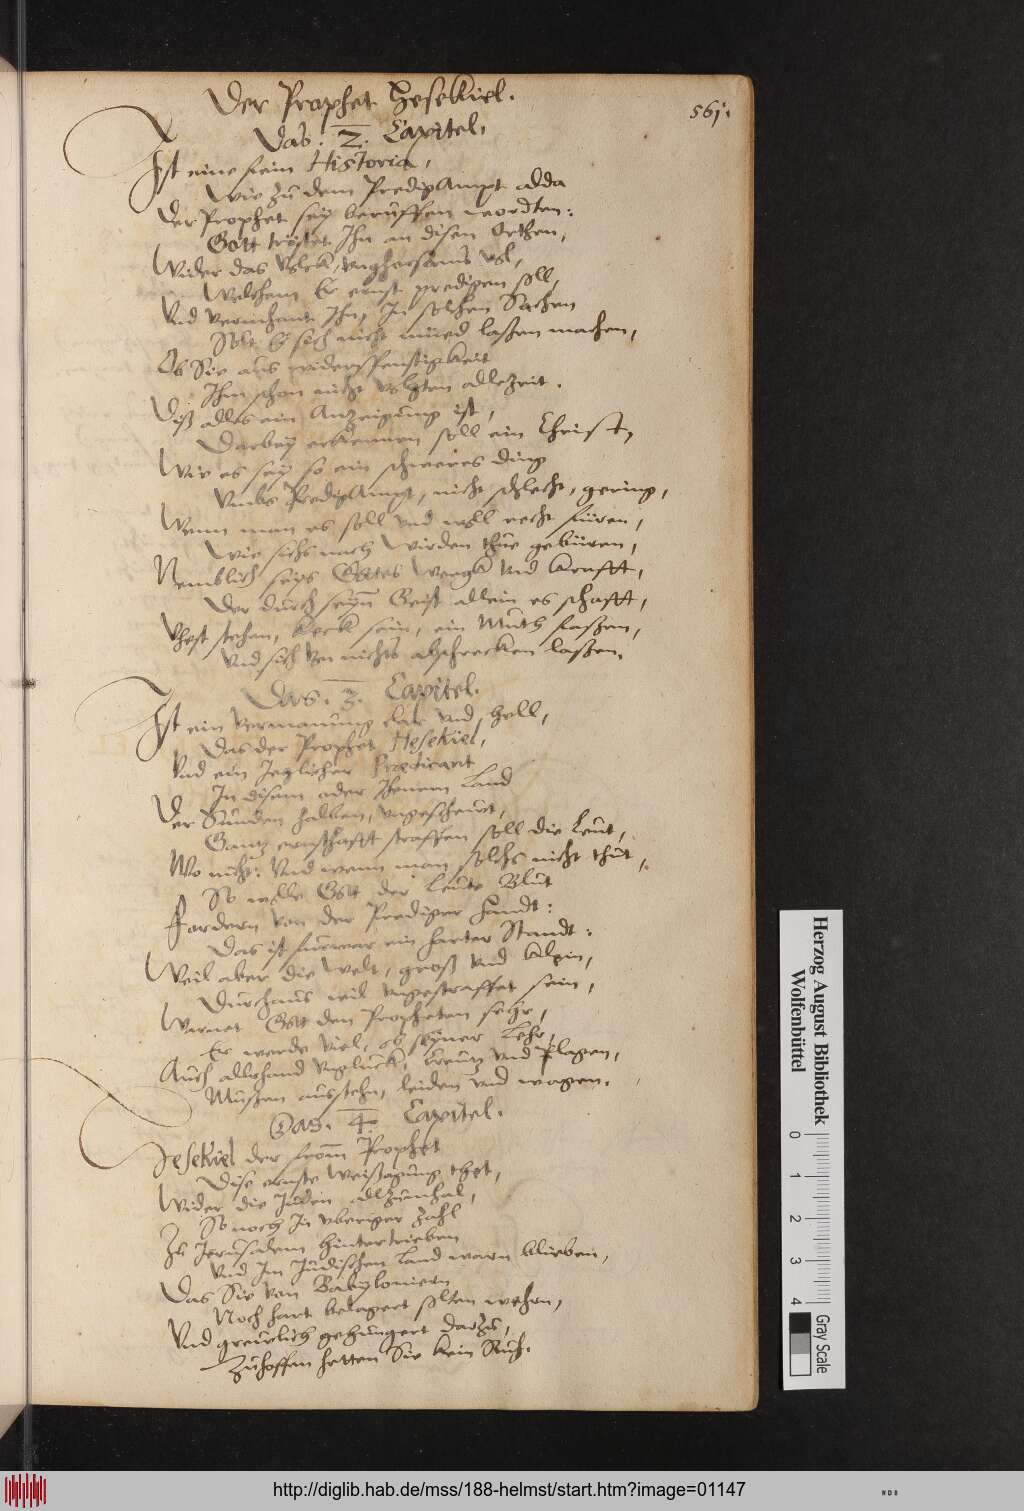 Der Prophet Hesekiel.
561.
Das. 2. Capitel.
Ist eine fein Historia,
Wie zu dem Predigampt alda
Der Prophet sey beruffen wordten:
Gott tröstet Ihn an disen Orthen,
Wider das Volck,
Welchem Er ernst predigen soll,
Vnd vermhant Ihn, In solchen Sachen
Solt Er sich nicht müed laßen machen,
Ob Sie aus widerspenstigkeit
Ihm schon nicht volgten allezeit.
Diß alles ein Anzeigung ist,
Darbey erkennen soll ein Christ,
Wie es sey so ein schweres ding
Vmbs Predigampt, nicht schlecht, gering,
Wenn man es soll vnd will recht füren,
Wie sichs nach Würden thue gebüren,
Nemblich seys Gottes Werck vnd krafft,
Der durch seyn Geist allein es schafft,
Vhest stehen, keck sein, ein Muth faßen,
Vnd sich von nichts abschrecken laßen.
Das. 3. Capitel.
Ist ein vermanung clar vnd hell,
Das der Prophet Hesekiel,
Vnd ein Jeglicher Prædicant
In disem oder Jhenem Land
Der Sünden halben, vngescheut,
Gantz ernsthafft straffen soll die Leut,
Wo nicht: Vnd wenn man solchs nicht thut,
So wölle Gott der Leute Blut
Fordern von der Prediger handt:
Das ist fürwar ein harter Standt:
Weil aber die Welt, groß vnd klein,
Durchaus wil vngestraffet sein,
Warnet Gott den Propheten sehr,
Er werde viel, ob seyner Lehr,
Auch allerhand vnglück, Creutz vnd Plagen,
Mußen ausstehn, leiden vnd wagen.
Das. 4. Capitel.
Hesekiel der from Prophet
Dise ernste Weissagung thet,
Wider die Juden allzumhal,
So noch In vberiger Zahl
Zu Jerusalem hintertrieben
Vnd Im Jüdischen Land warn blieben,
Das Sie von Babyloniern
Noch hart belagert solten wehrn,
Vnd greulich gehungert darzu,
Zuhoffen hetten Sie kein Ruh.
Herzog August Bibliothek
Wolfenbüttel
0 1 2 3 4
Gray Scale
http://diglib.hab.de/mss/188-helmst/start.htm?image=01147